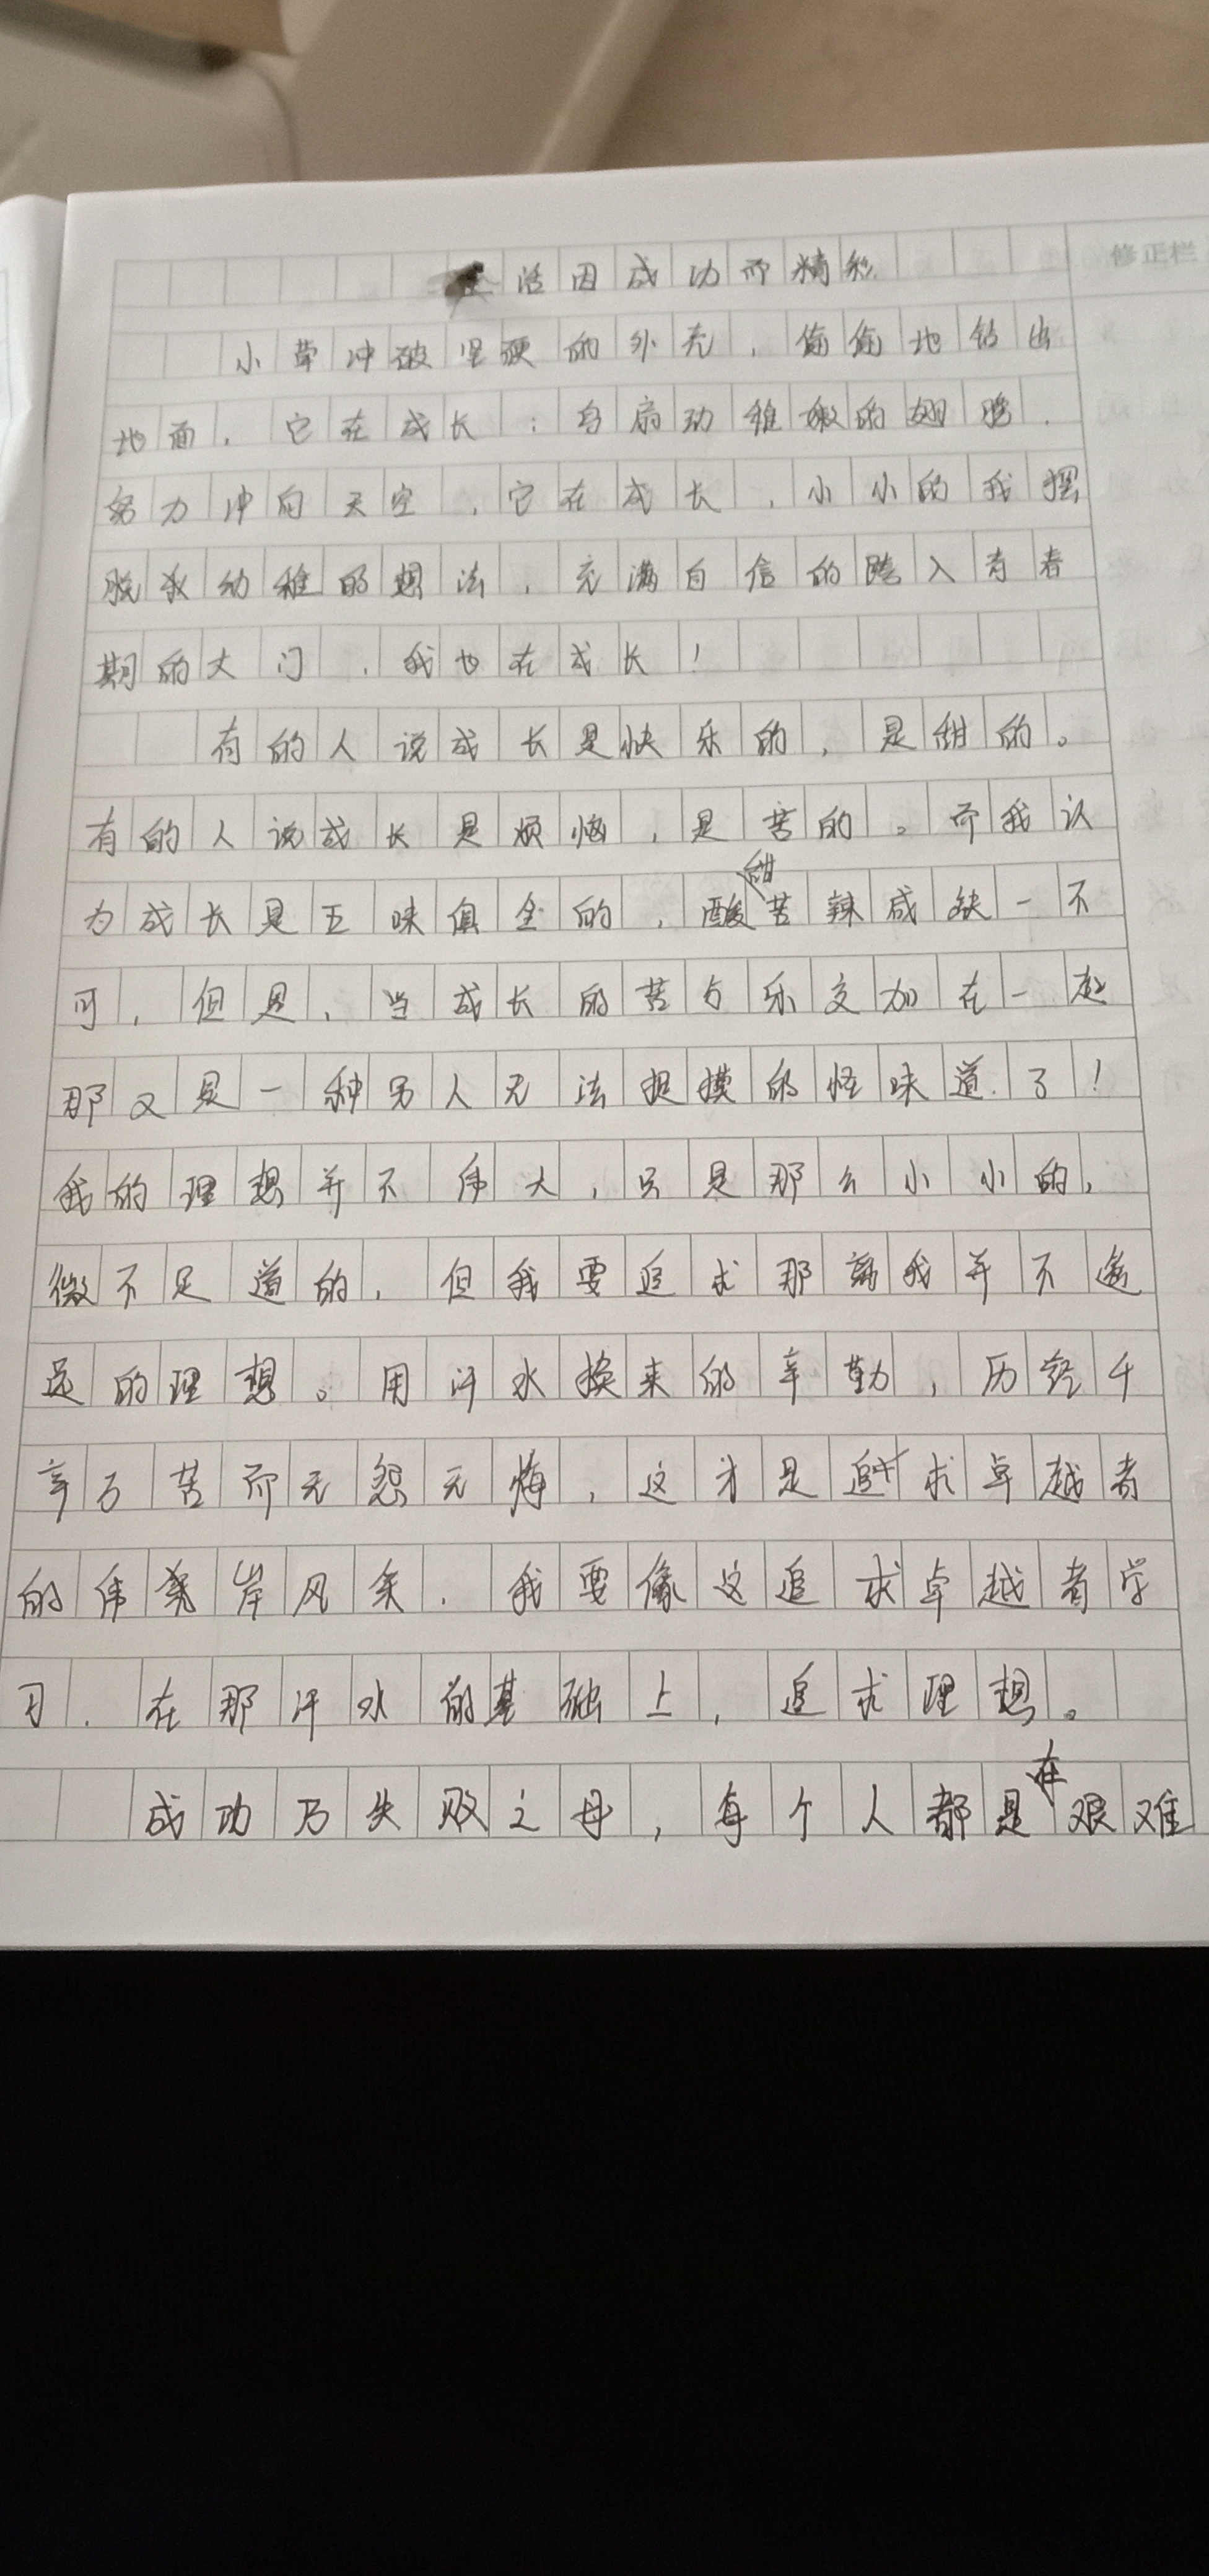 修正栏
生活因成功而精彩
小草冲破坚硬的外壳，偷偷地钻出
地面，它在成长；鸟扇动稚嫩的翅膀，
努力冲向天空，它在成长，小小的我摆
脱我幼稚的想法，充满自信的跨入青春
期的大门，我也在成长！
有的人说成长是快乐的，是甜的。
有的人说成长是烦恼，是苦的。而我认
为成长是五味俱全的，酸甜苦辣咸缺一不
可，但是，当成长的苦与乐交加在一起
那又是一种另人无法捉摸的怪味道了！
我的理想并不伟大，只是那么小小的，
微不足道的，但我要追求那离我并不遥
远的理想。用汗水换来的辛勤，历经千
辛万苦而无怨无悔，这才是追求卓越者
的伟岸风采。我要像这追求卓越者学
习，在那汗水的基础上，追求理想。
成功乃失败之母，每个人都是在艰难